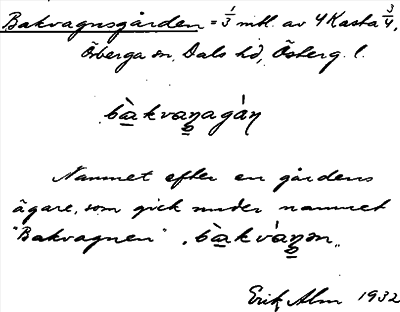 Bakvagnsgården = 1/3 mtl. av 4 Kasta 3/4,
Örberga sn, Dals hd, Österg. l.
bàkvaṉagán
Namnet efter en gårdens
ägare, som gick under namnet
"Bakvagnen", bàkváṉən„
Erik Alm 1932